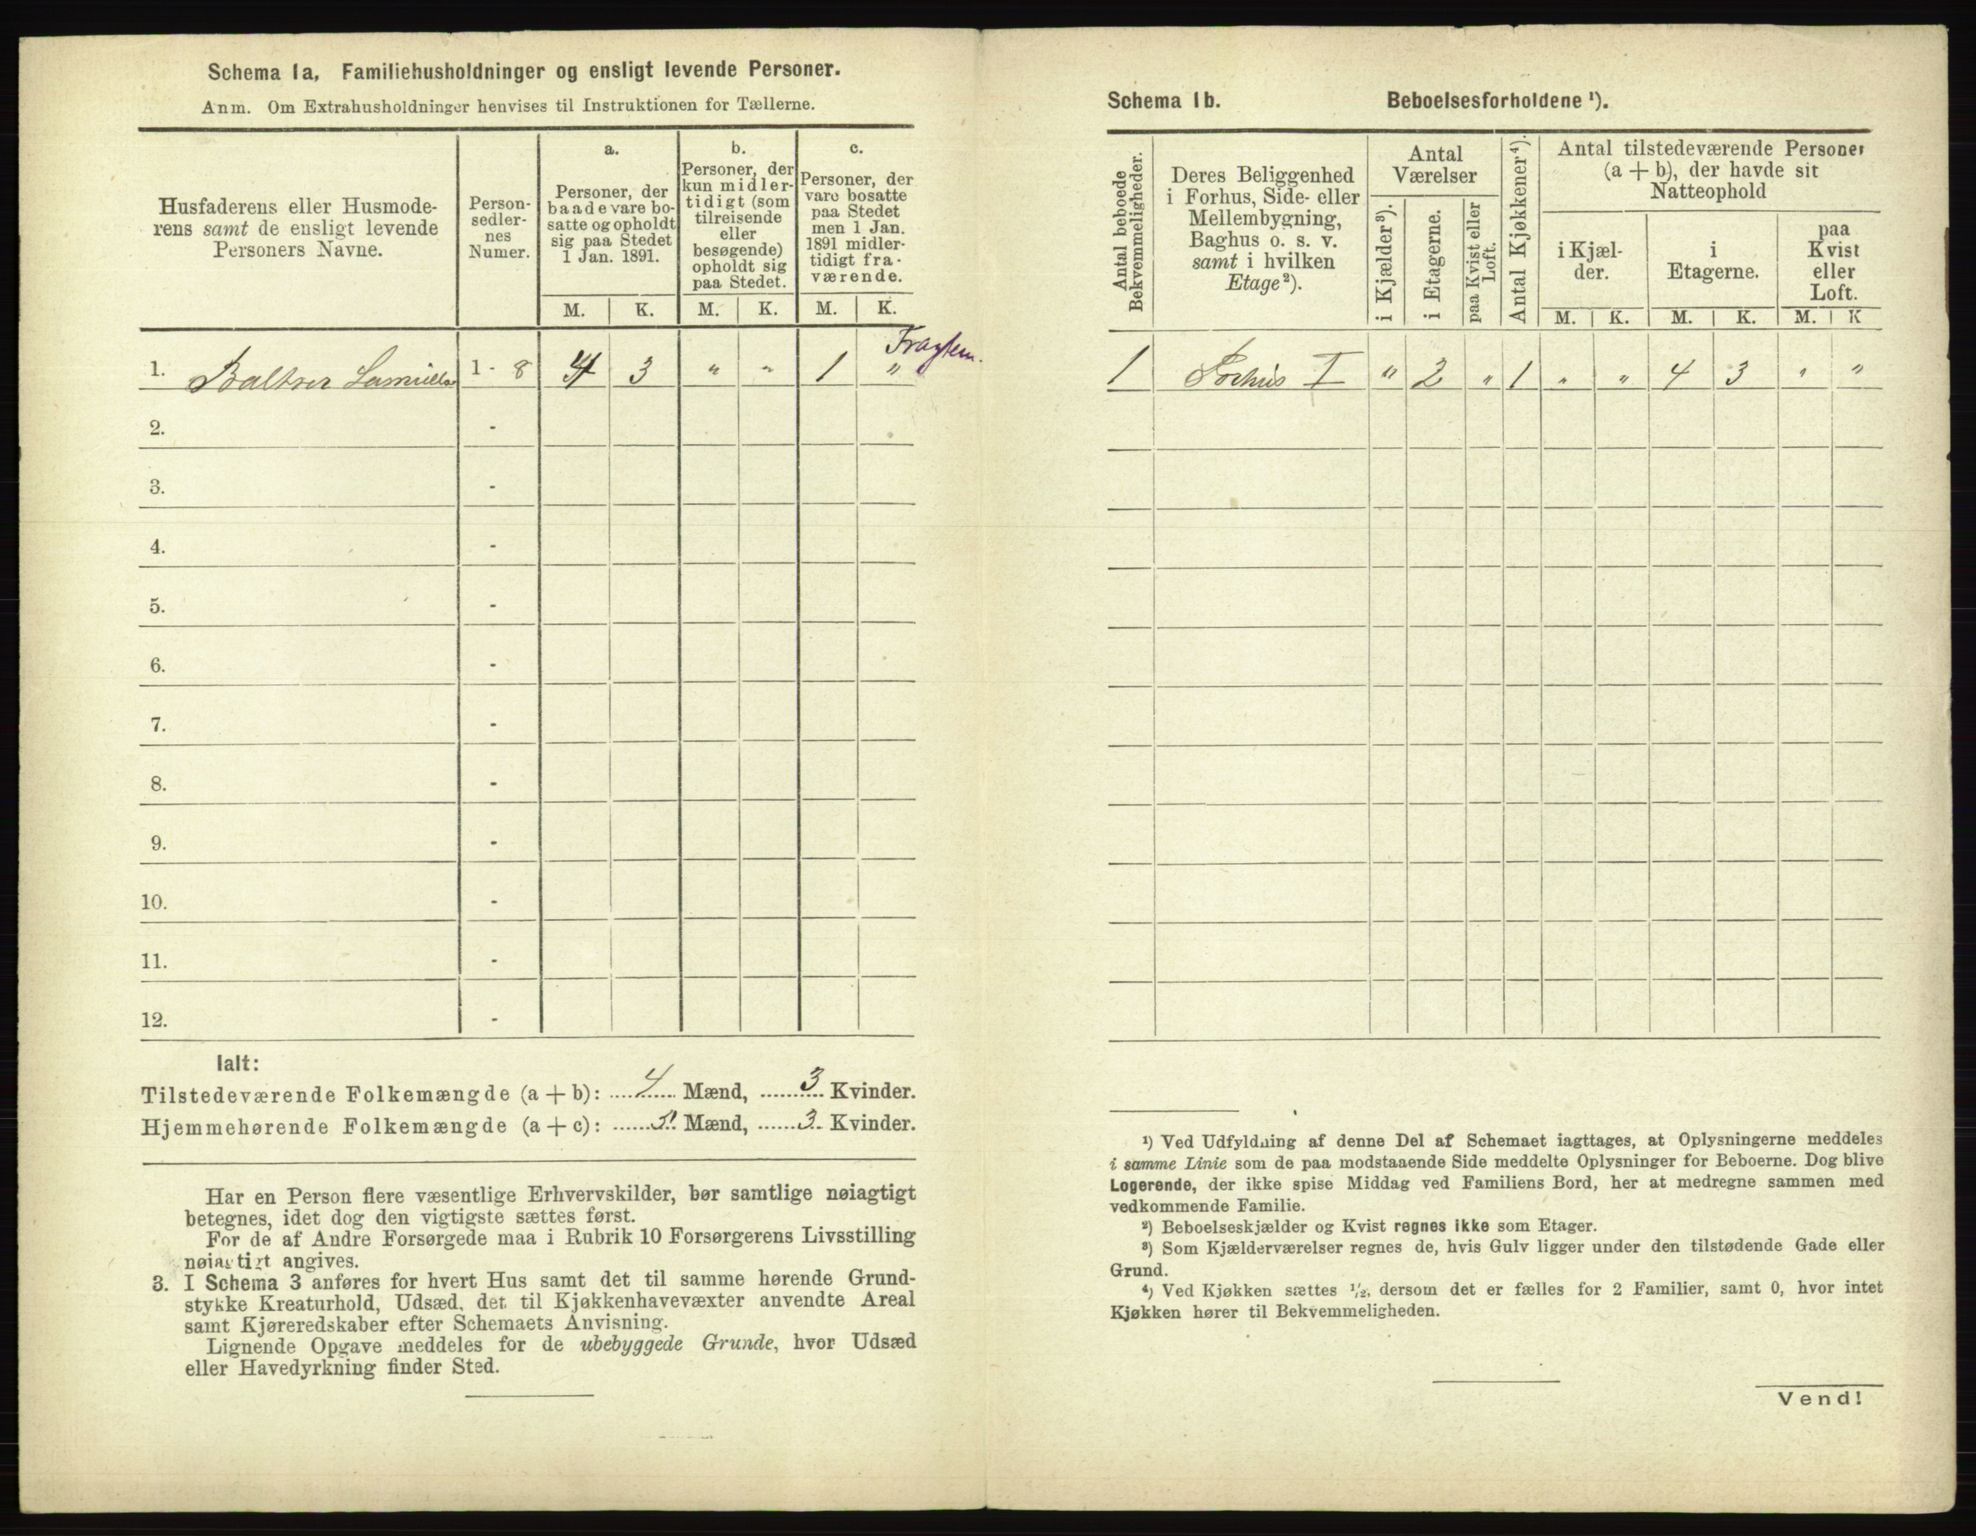 Schema 1a, Familiehusholdninger og ensligt levende Personer.
Anm. Om Extrahusholdninger henvises til Instruktionen for Tællerne.
Husfaderens eller Husmode-
rens samt de ensligt levende
Personers Navne.
Person-
sedler-
nes
Numer.
a.
Personer, der
baade vare bo-
satte og opholdt
sig paa Stedet
1 Jan. 1891.
b.
Personer, der
kun midler-
tidigt (som
tilreisende
eller
besøgende)
opholdt sig
paa Stedet.
c.
Personer, der
vare bosatte
paa Stedet
men 1 Jan.
1891 midler-
tidigt fra-
værende.
M. K. M. K. M. K.
Fragtem.
1. Baltser Samuels 1 - 8 4 3 " " 1 "
2. -
3. -
4. -
5. -
6. -
7. -
8. -
9. -
10. -
11. -
12. -
Ialt:
Tilstedeværende Folkemængde (a + b): 4 Mænd, 3 Kvinder.
Hjemmehørende Folkemængde (a + c): Mænd, 3 Kvinder.
Har en Person flere væsentlige Erhvervskilder, bør samtlige nøiagtigt
betegnes, idet dog den vigtigste sættes først.
For de af Andre Forsørgede maa i Rubrik 10 Forsørgerens Livsstilling
nøiagtigt angives.
3. I Schema 3 anføres for hvert Hus samt det til samme hørende Grund-
stykke Kreaturhold, Udsæd, det til Kjøkkenhavevæxter anvendte Areal
samt Kjøreredskaber efter Schemaets Anvisning.
Lignende Opgave meddeles for de ubebyggede Grunde, hvor Udsæd
eller Havedyrkning finder Sted.
Schema 1b. Beboelsesforholdene ¹).
Antal beboede
Bekvemmeligheder.
Deres Beliggenhed
i Forhus, Side- eller
Mellembygning,
Baghus o. s. v.
samt i hvilken
Etage ²).
Antal
Værelser
i Kjælder ³).
i Etagerne.
paa Kvist eller
Loft.
Antal Kjøkkener ⁴).
Antal tilstedeværende Personer
(a + b), der havde sit
Natteophold
i Kjæl-
der.
i
Etagerne.
paa
Kvist
eller
Loft.
M. K. M. K. M. K
1 Forhus I " 2 " 1 " " 4 3 " "
¹) Ved Udfyldning af denne Del af Schemaet iagttages, at Oplysningerne meddeles
i samme Linie som de paa modstaaende Side meddelte Oplysninger for Beboerne. Dog blive
Logerende, der ikke spise Middag ved Familiens Bord, her at medregne sammen med
vedkommende Familie.
²) Beboelseskjælder og Kvist regnes ikke som Etager.
³) Som Kjælderværelser regnes de, hvis Gulv ligger under den tilstødende Gade eller
Grund.
⁴) Ved Kjøkken sættes ½, dersom det er fælles for 2 Familier, samt 0, hvor intet
Kjøkken hører til Bekvemmeligheden.
Vend!